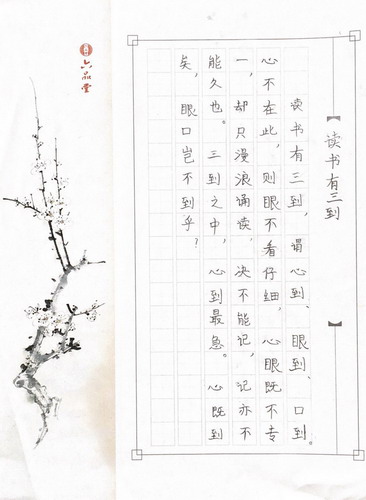 读书有三到
读书有三到，谓心到、眼到、口到
心不在此，则眼不看仔细，心眼既不专
一，却只漫浪诵读，决不能记，记亦不
能久也。三到之中，心到最急。心既到
矣，眼口岂不到乎？
六品堂